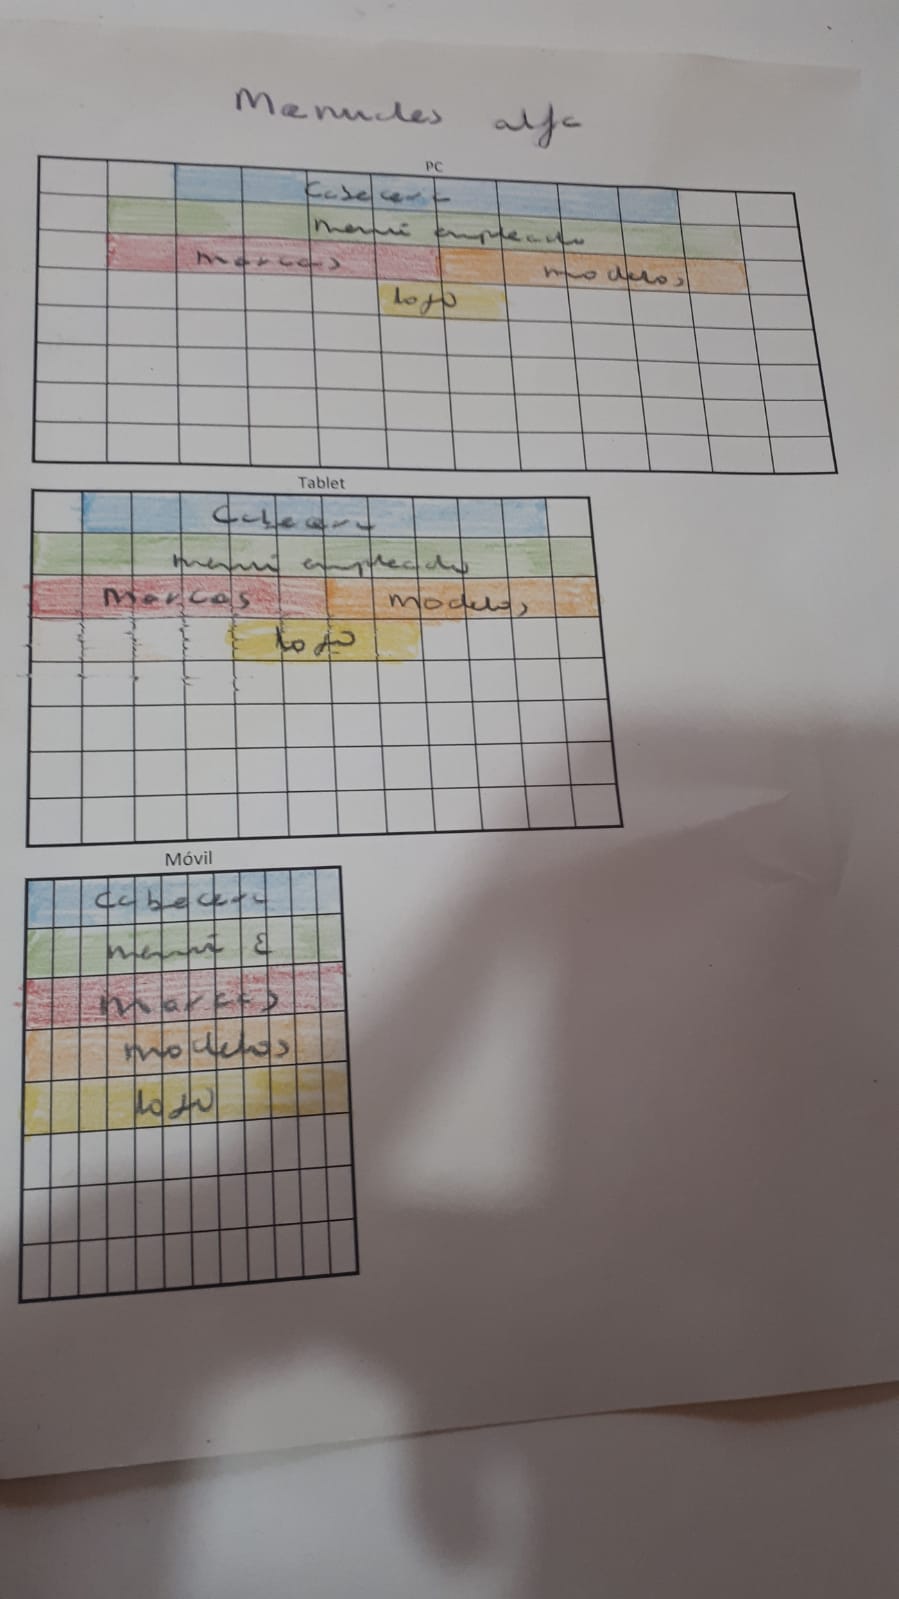 Manuales alfa
PC
Cabecera
menú empleado
marcas modelos
logo
Tablet
Cabecera
menú empleado
Marcas modelos
logo
Móvil
Cabecera
menú E
Marcas
modelos
logo